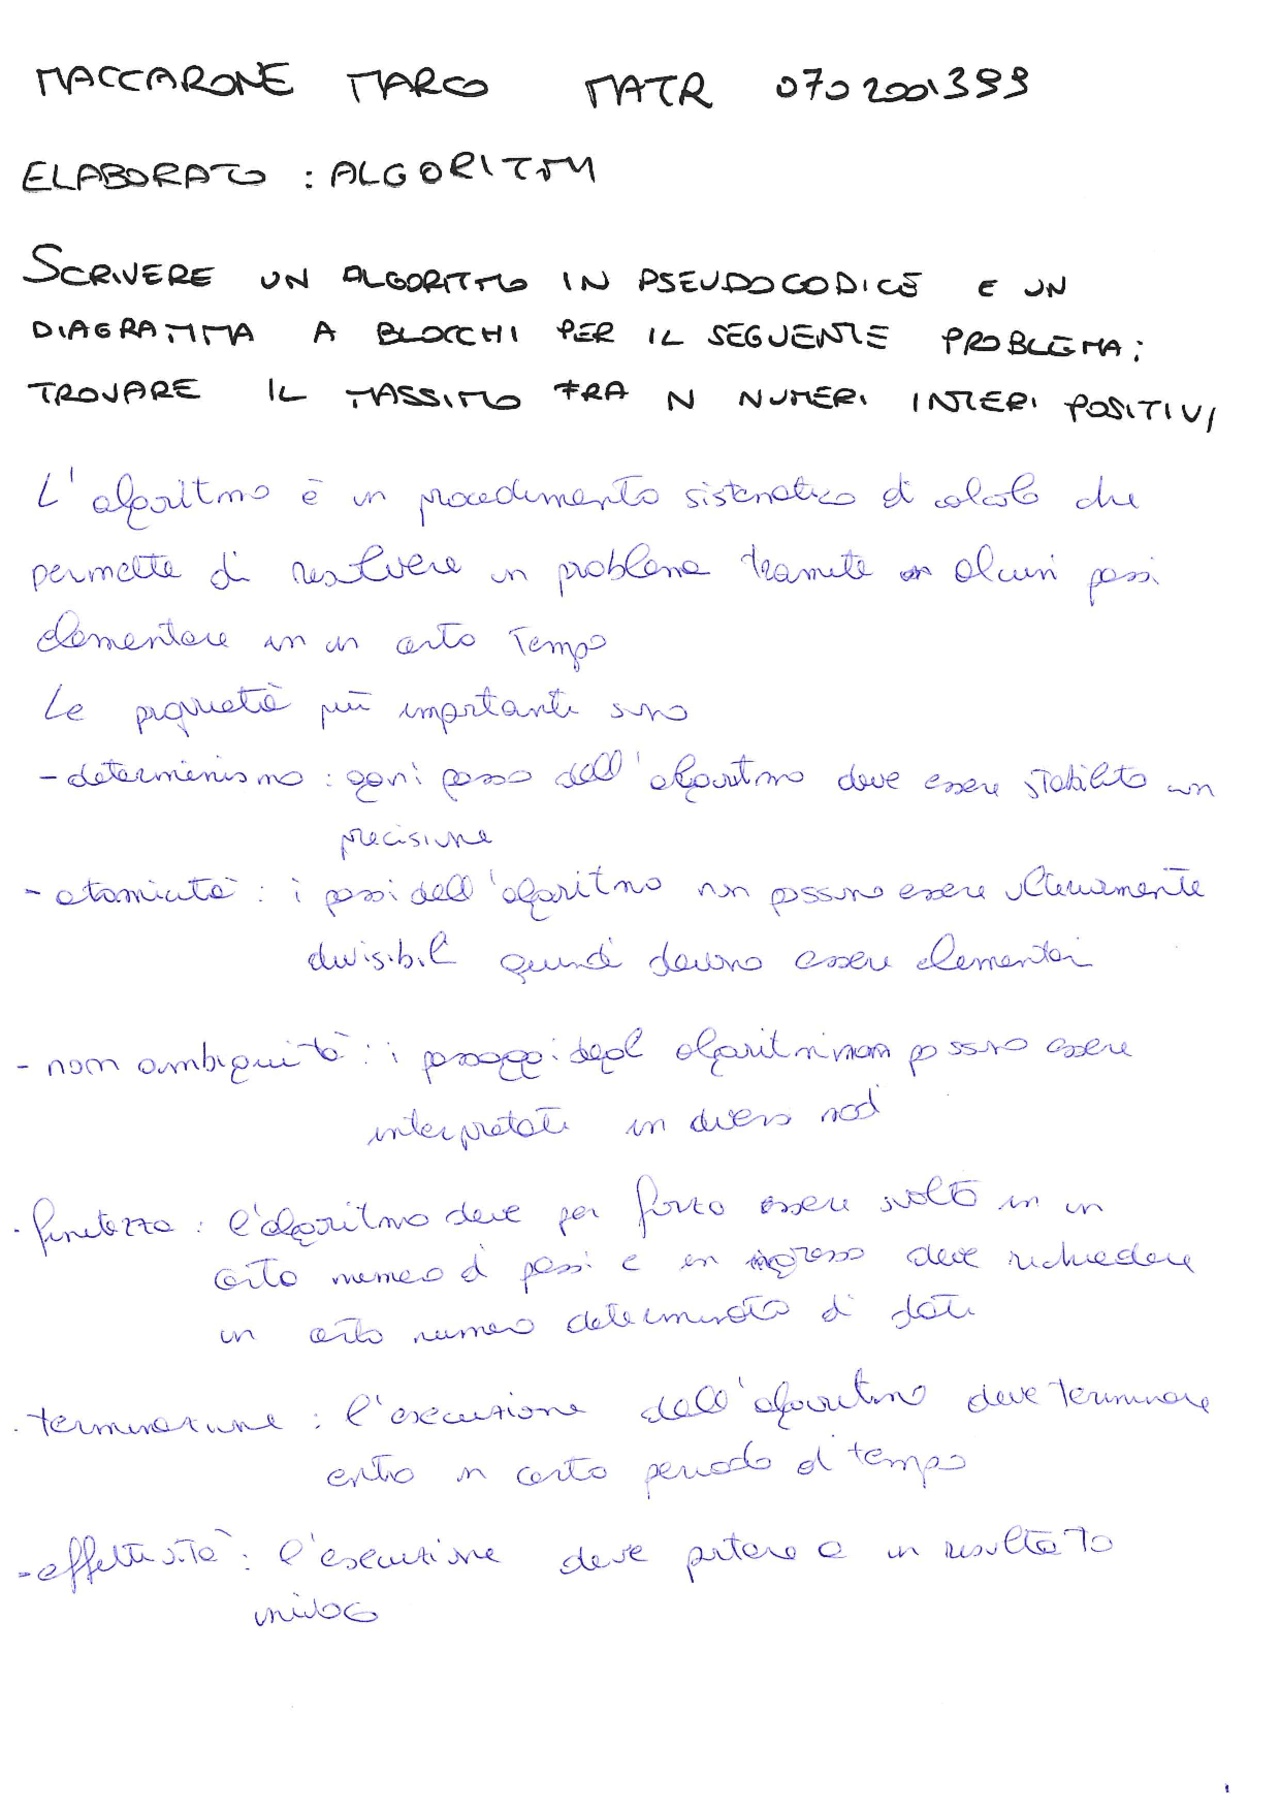 MACCARONE MARCO MATR 0702001399
ELABORATO : ALGORITMI
SCRIVERE UN ALGORITMO IN PSEUDOCODICE E UN
DIAGRAMMA A BLOCCHI PER IL SEGUENTE PROBLEMA:
TROVARE IL MASSIMO FRA N NUMERI INTERI POSITIVI
L'algoritmo è un procedimento sistematico di calcolo che
permette di risolvere un problema tramite alcuni passi
elementare in un certo tempo
Le proprietà più importanti sono
- determinismo : ogni passo dell'algoritmo deve essere stabilito con
precisione
- atomicità : i passi dell'algoritmo non possono essere ulteriormente
divisibili quindi devono essere elementari
- non ambiguità : i passaggi degli algoritmi non possono essere
interpretati in diversi modi
- finitezza : l'algoritmo deve per forza essere svolto in un
certo numero di passi e in ingresso deve richiedere
un certo numero determinato di dati
- terminazione : l'esecuzione dell'algoritmo deve terminare
entro un certo periodo di tempo
- effettività : l'esecuzione deve portare a un risultato
univoco